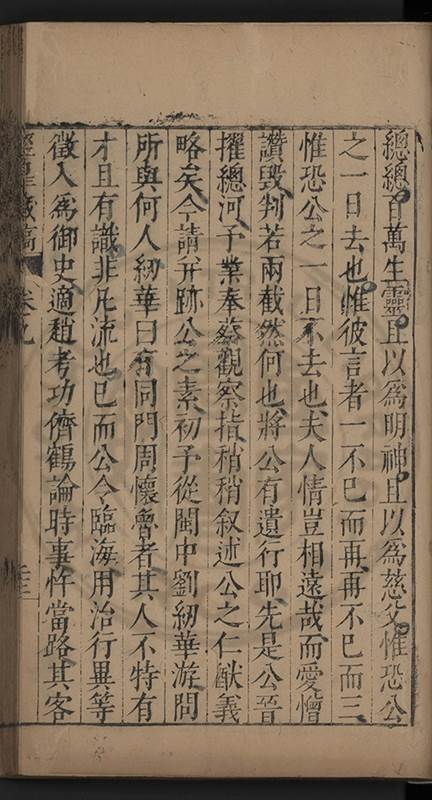 總總百萬生靈且以爲明神且以爲慈父惟恐公
之一日去也惟彼言者一不已而再再不已而三
惟恐公之一日不去也夫人情豈相遠哉而愛憎
讚毀判若兩截然何也將公有遺行耶先是公晉
擢總河予業奉蔡觀察指稍稍叙述公之仁猷義
略矣今請并跡公之素初予從閩中劉紉華游問
所與何人紉華曰有同門周懷魯者其人不特有
才且有識非凡流也已而公令臨海用治行異等
徵入爲御史適趙考功儕鶴論時事忤當路其客
藏稿 卷九